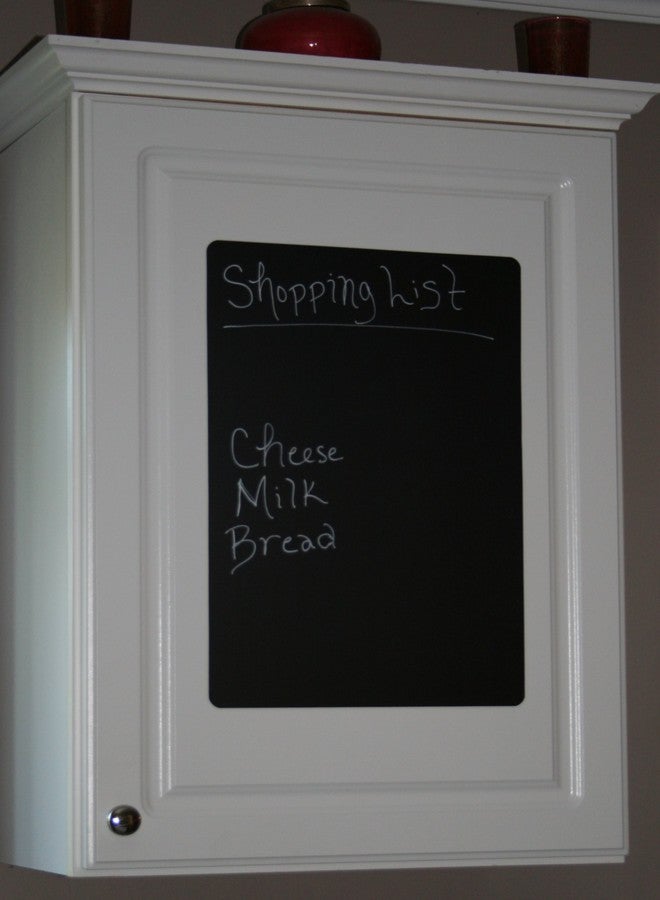 Shopping List
Cheese
Milk
Bread